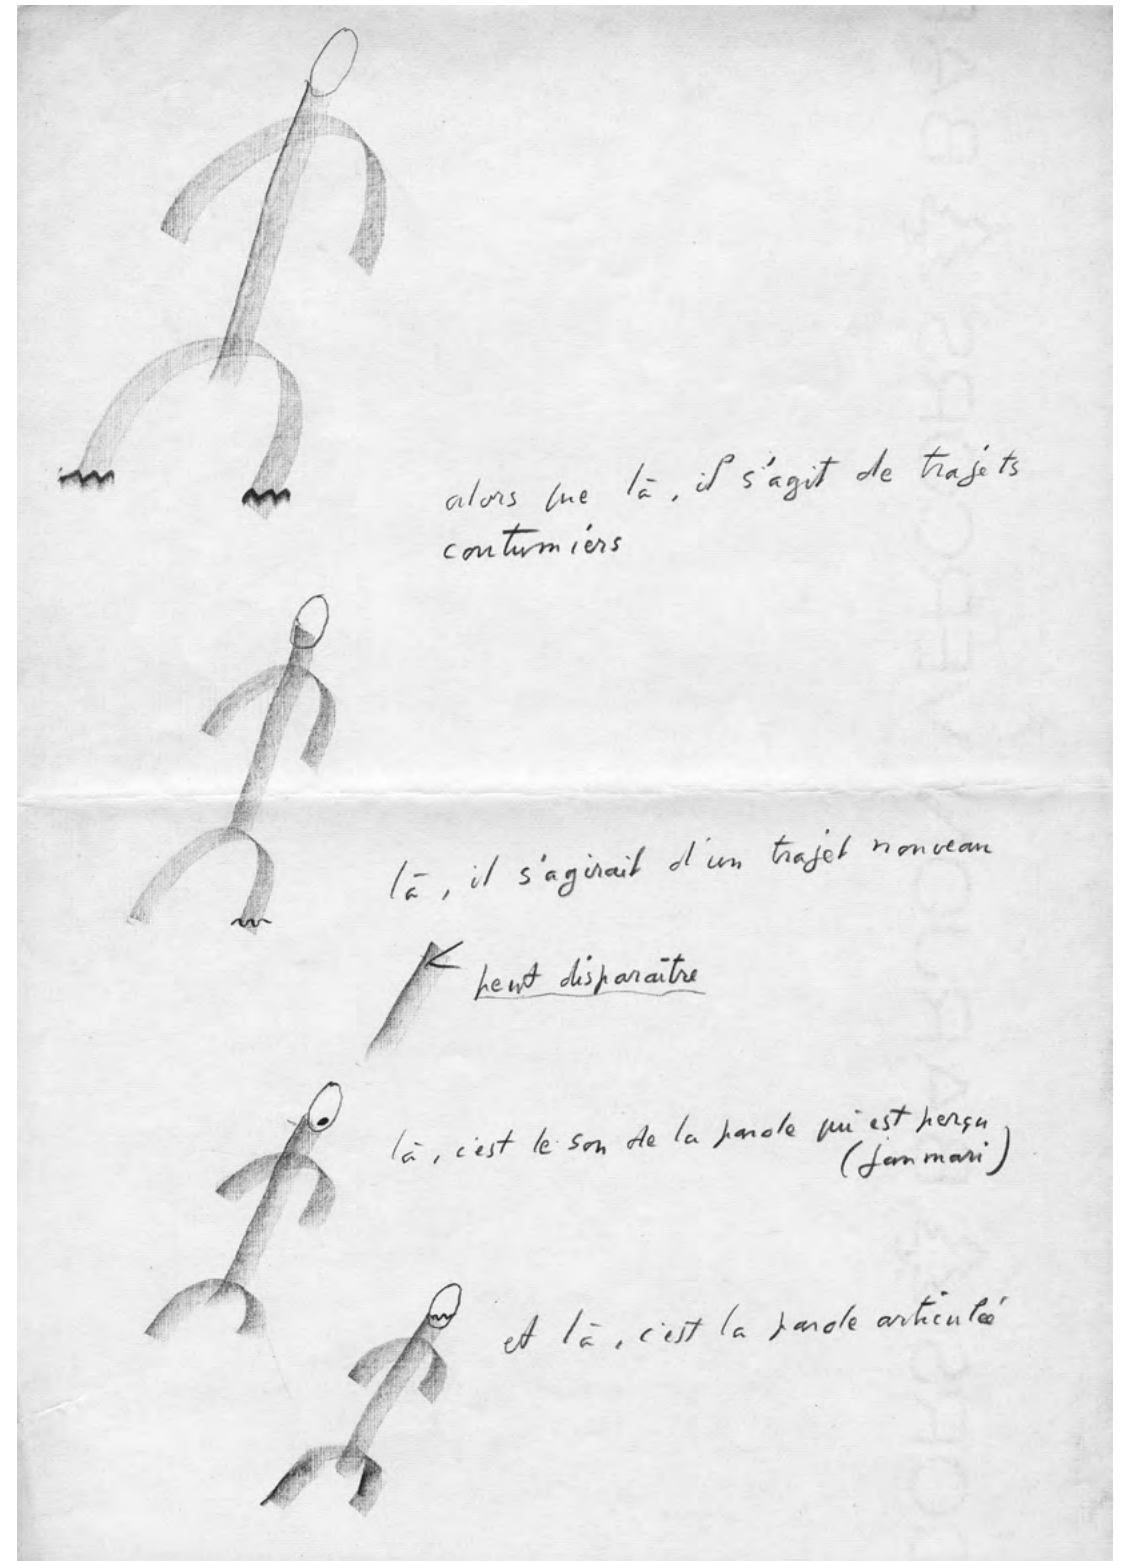 alors que là, il s'agit de trajets
coutumiers
là, il s'agirait d'un trajet nouveau
peut disparaître
là, c'est le son de la parole qui est perçu
(janmari)
et là, c'est la parole articulée